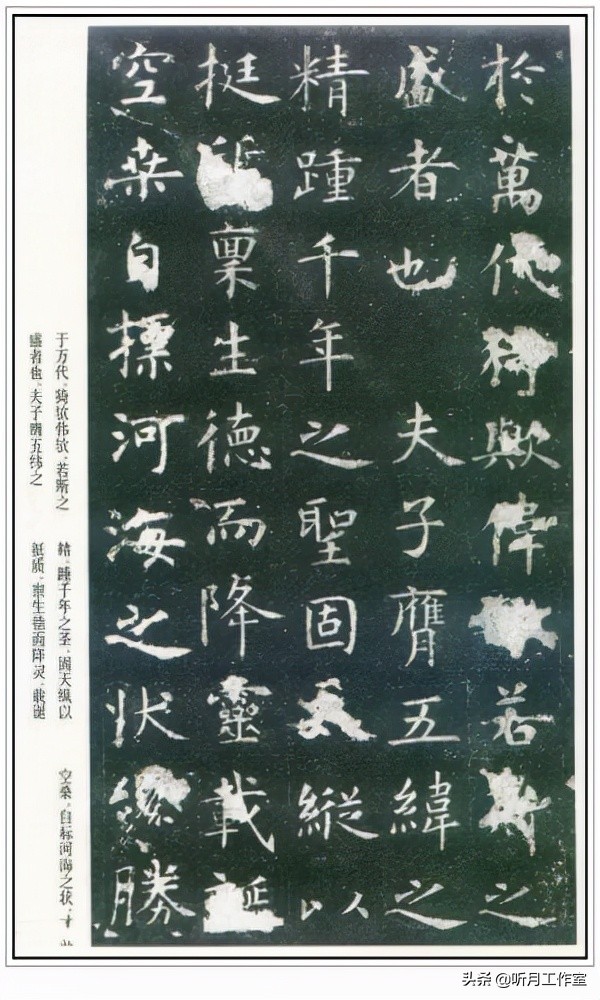 於萬代猗歟偉若斯之
盛者也夫子膺五緯之
精踵千年之聖固天縱以
挺質稟生德而降靈載誕
空桒自摽河海之状纔勝
于万代。猗欤伟欤，若斯之
盛者也。夫子膺五纬之
精，踵千年之圣，固天纵以
挺质，禀生德而降灵，载诞
空桑，自标河海之状，才
头条 @听月工作室